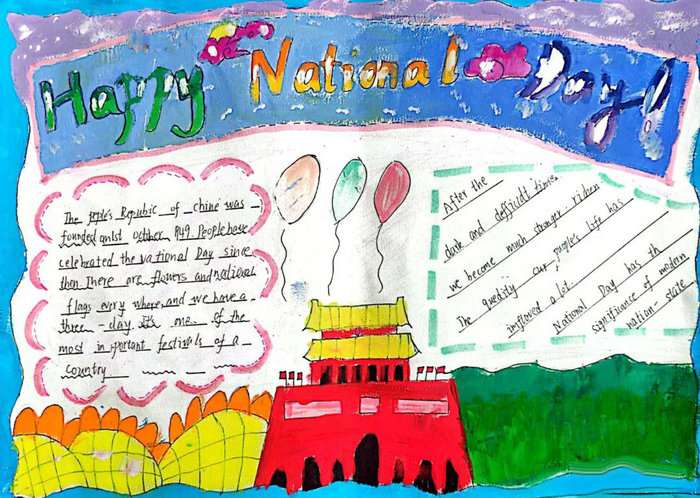 Happy National Day!
The people's Republic of chine was
founded on 1st october 1949 People have
celebrated the national Day since
then There are flowers and national
flags every where, and we have a
three - day It's one of the
most in portant festivals of a
country
After the
dark and difficult time,
we become much stronger richen
The quedity our people's life has
improved a lot
National Day has th
significance of modern
nation - state